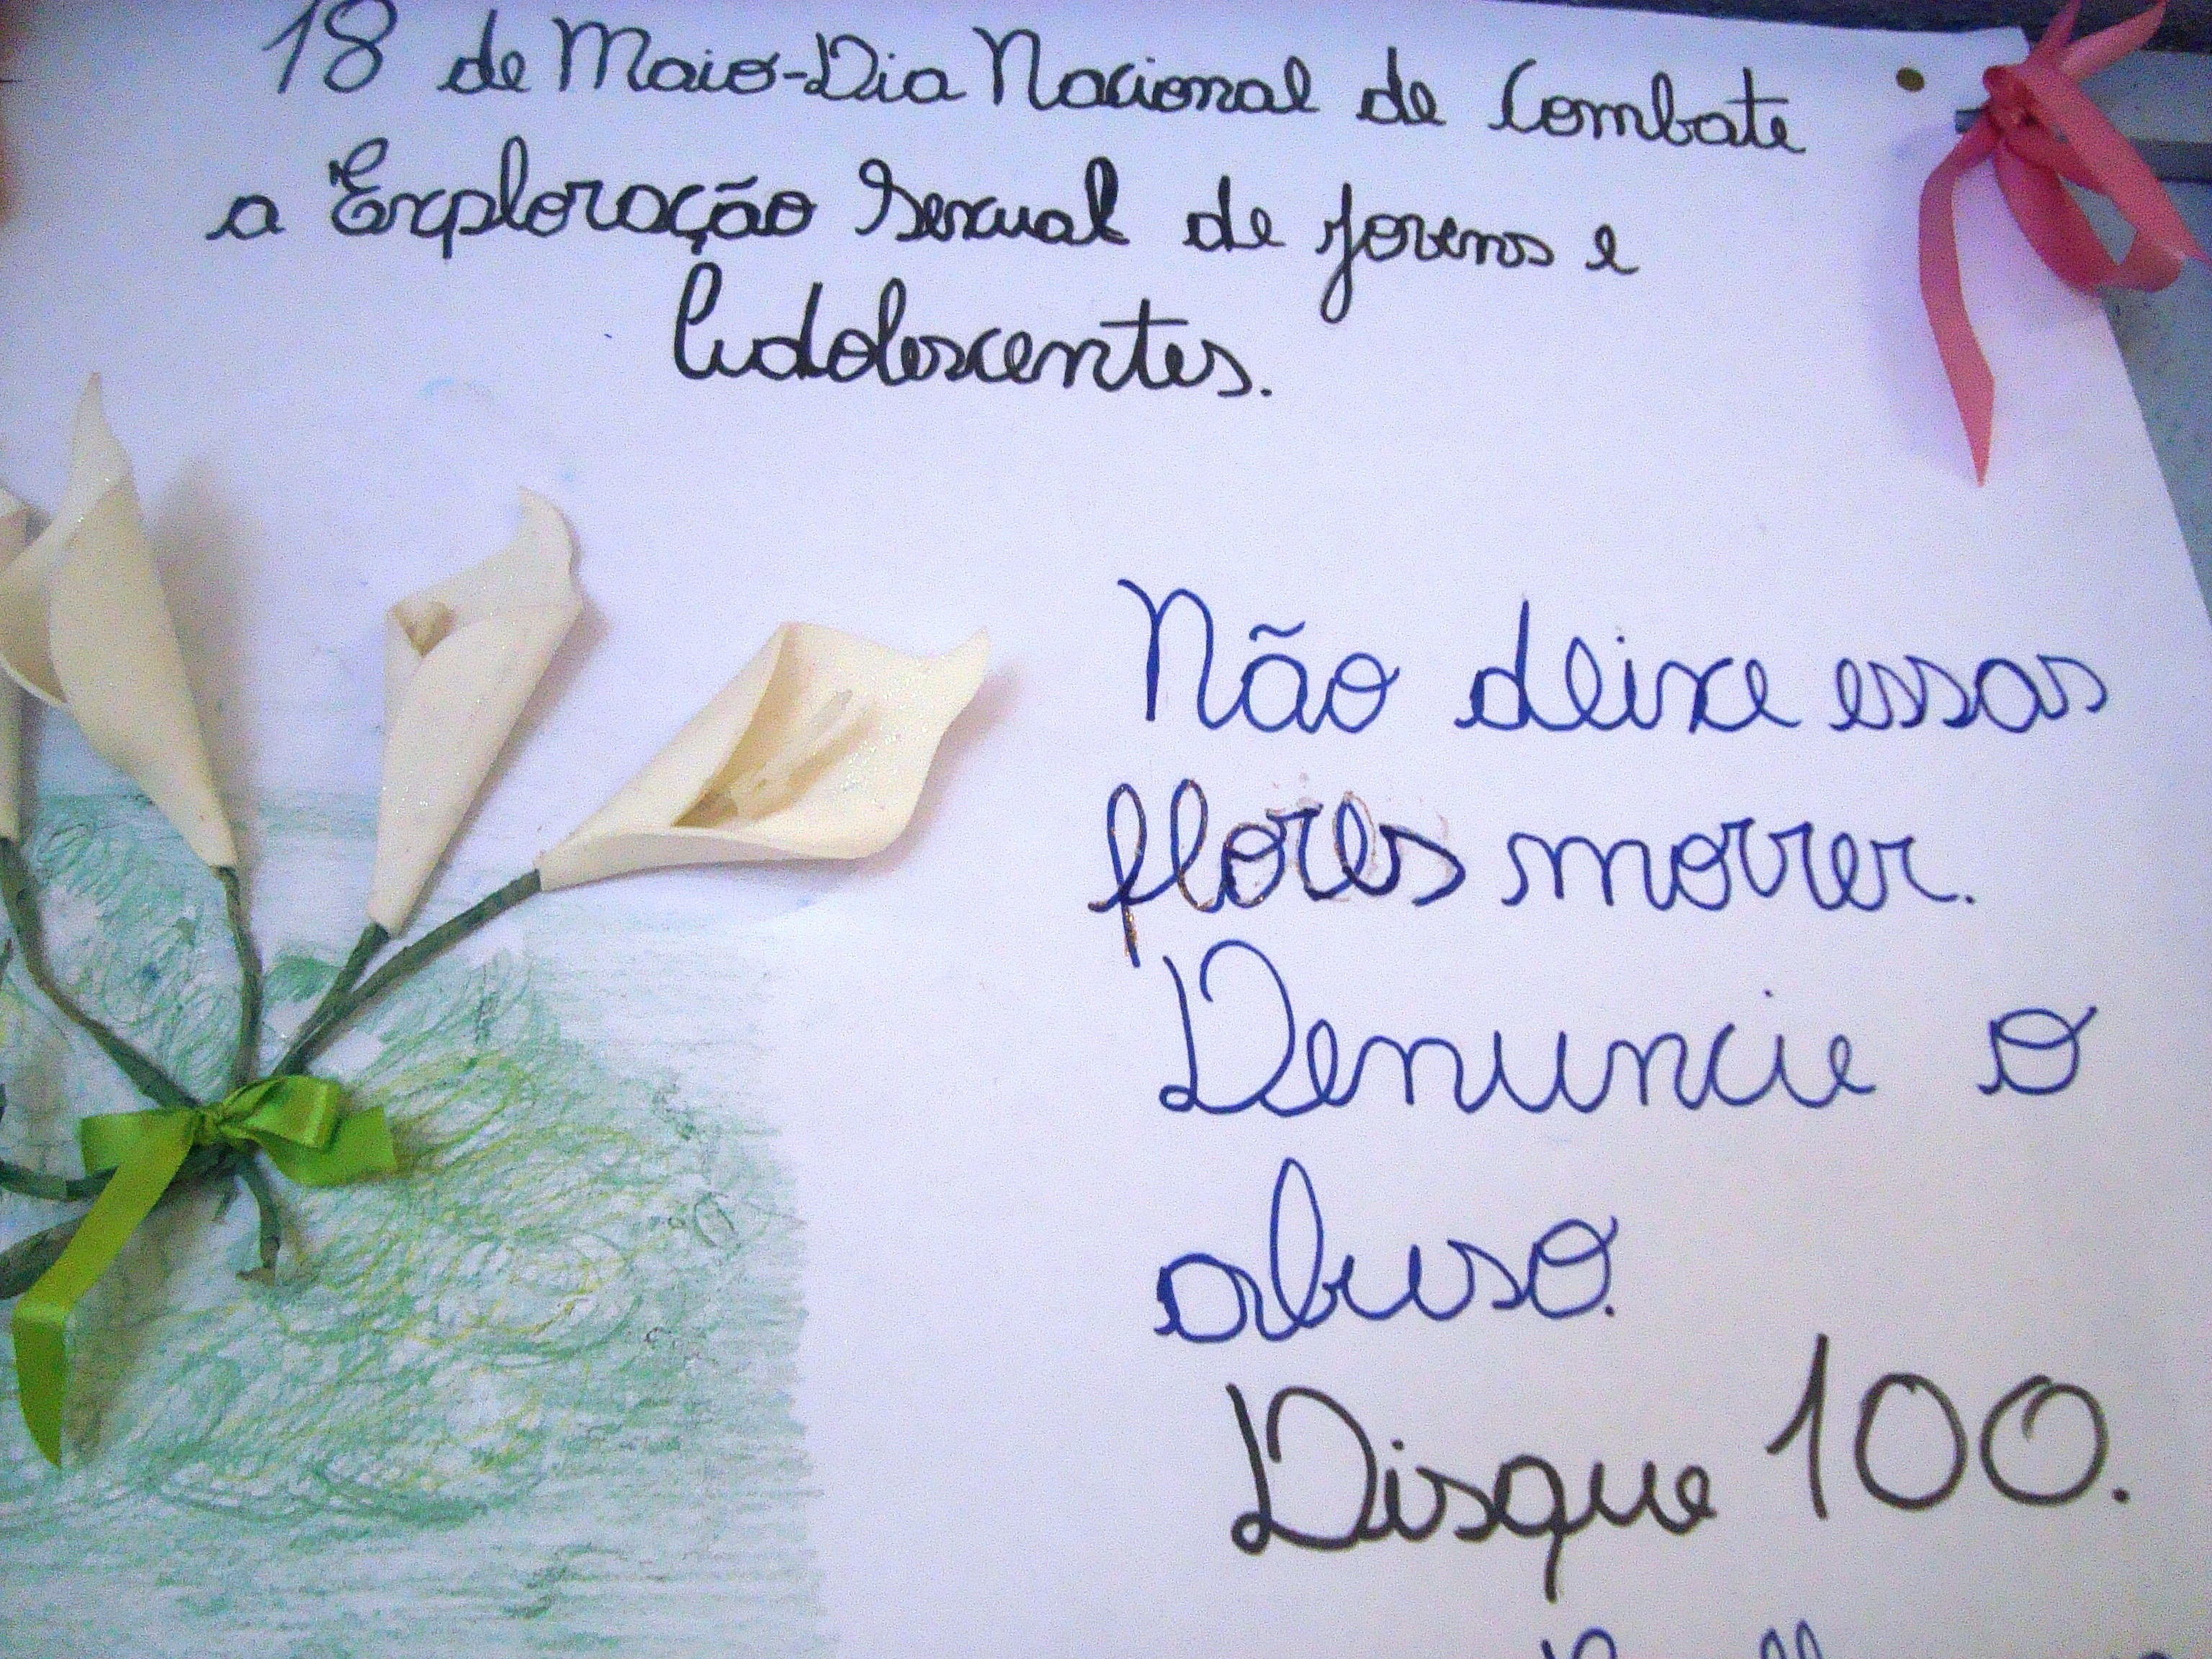 18 de Maio-Dia Nacional de Combate
a Exploração Sexual de jovens e
Adolescentes.
Não deixe essas
flores morrer.
Denuncie o
abuso.
Disque 100.